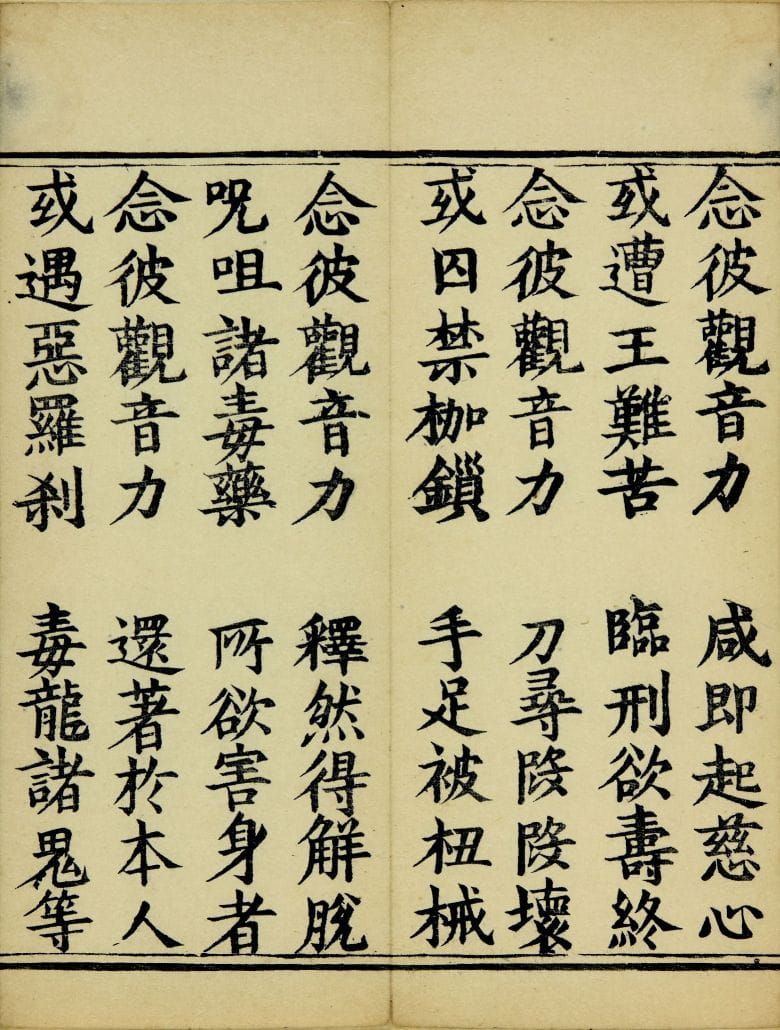 念彼觀音力　咸即起慈心
或遭王難苦　臨刑欲壽終
念彼觀音力　刀尋叚叚壞
或囚禁枷鎖　手足被杻械
念彼觀音力　釋然得解脫
呪咀諸毒藥　所欲害身者
念彼觀音力　還著於本人
或遇惡羅刹　毒龍諸鬼等